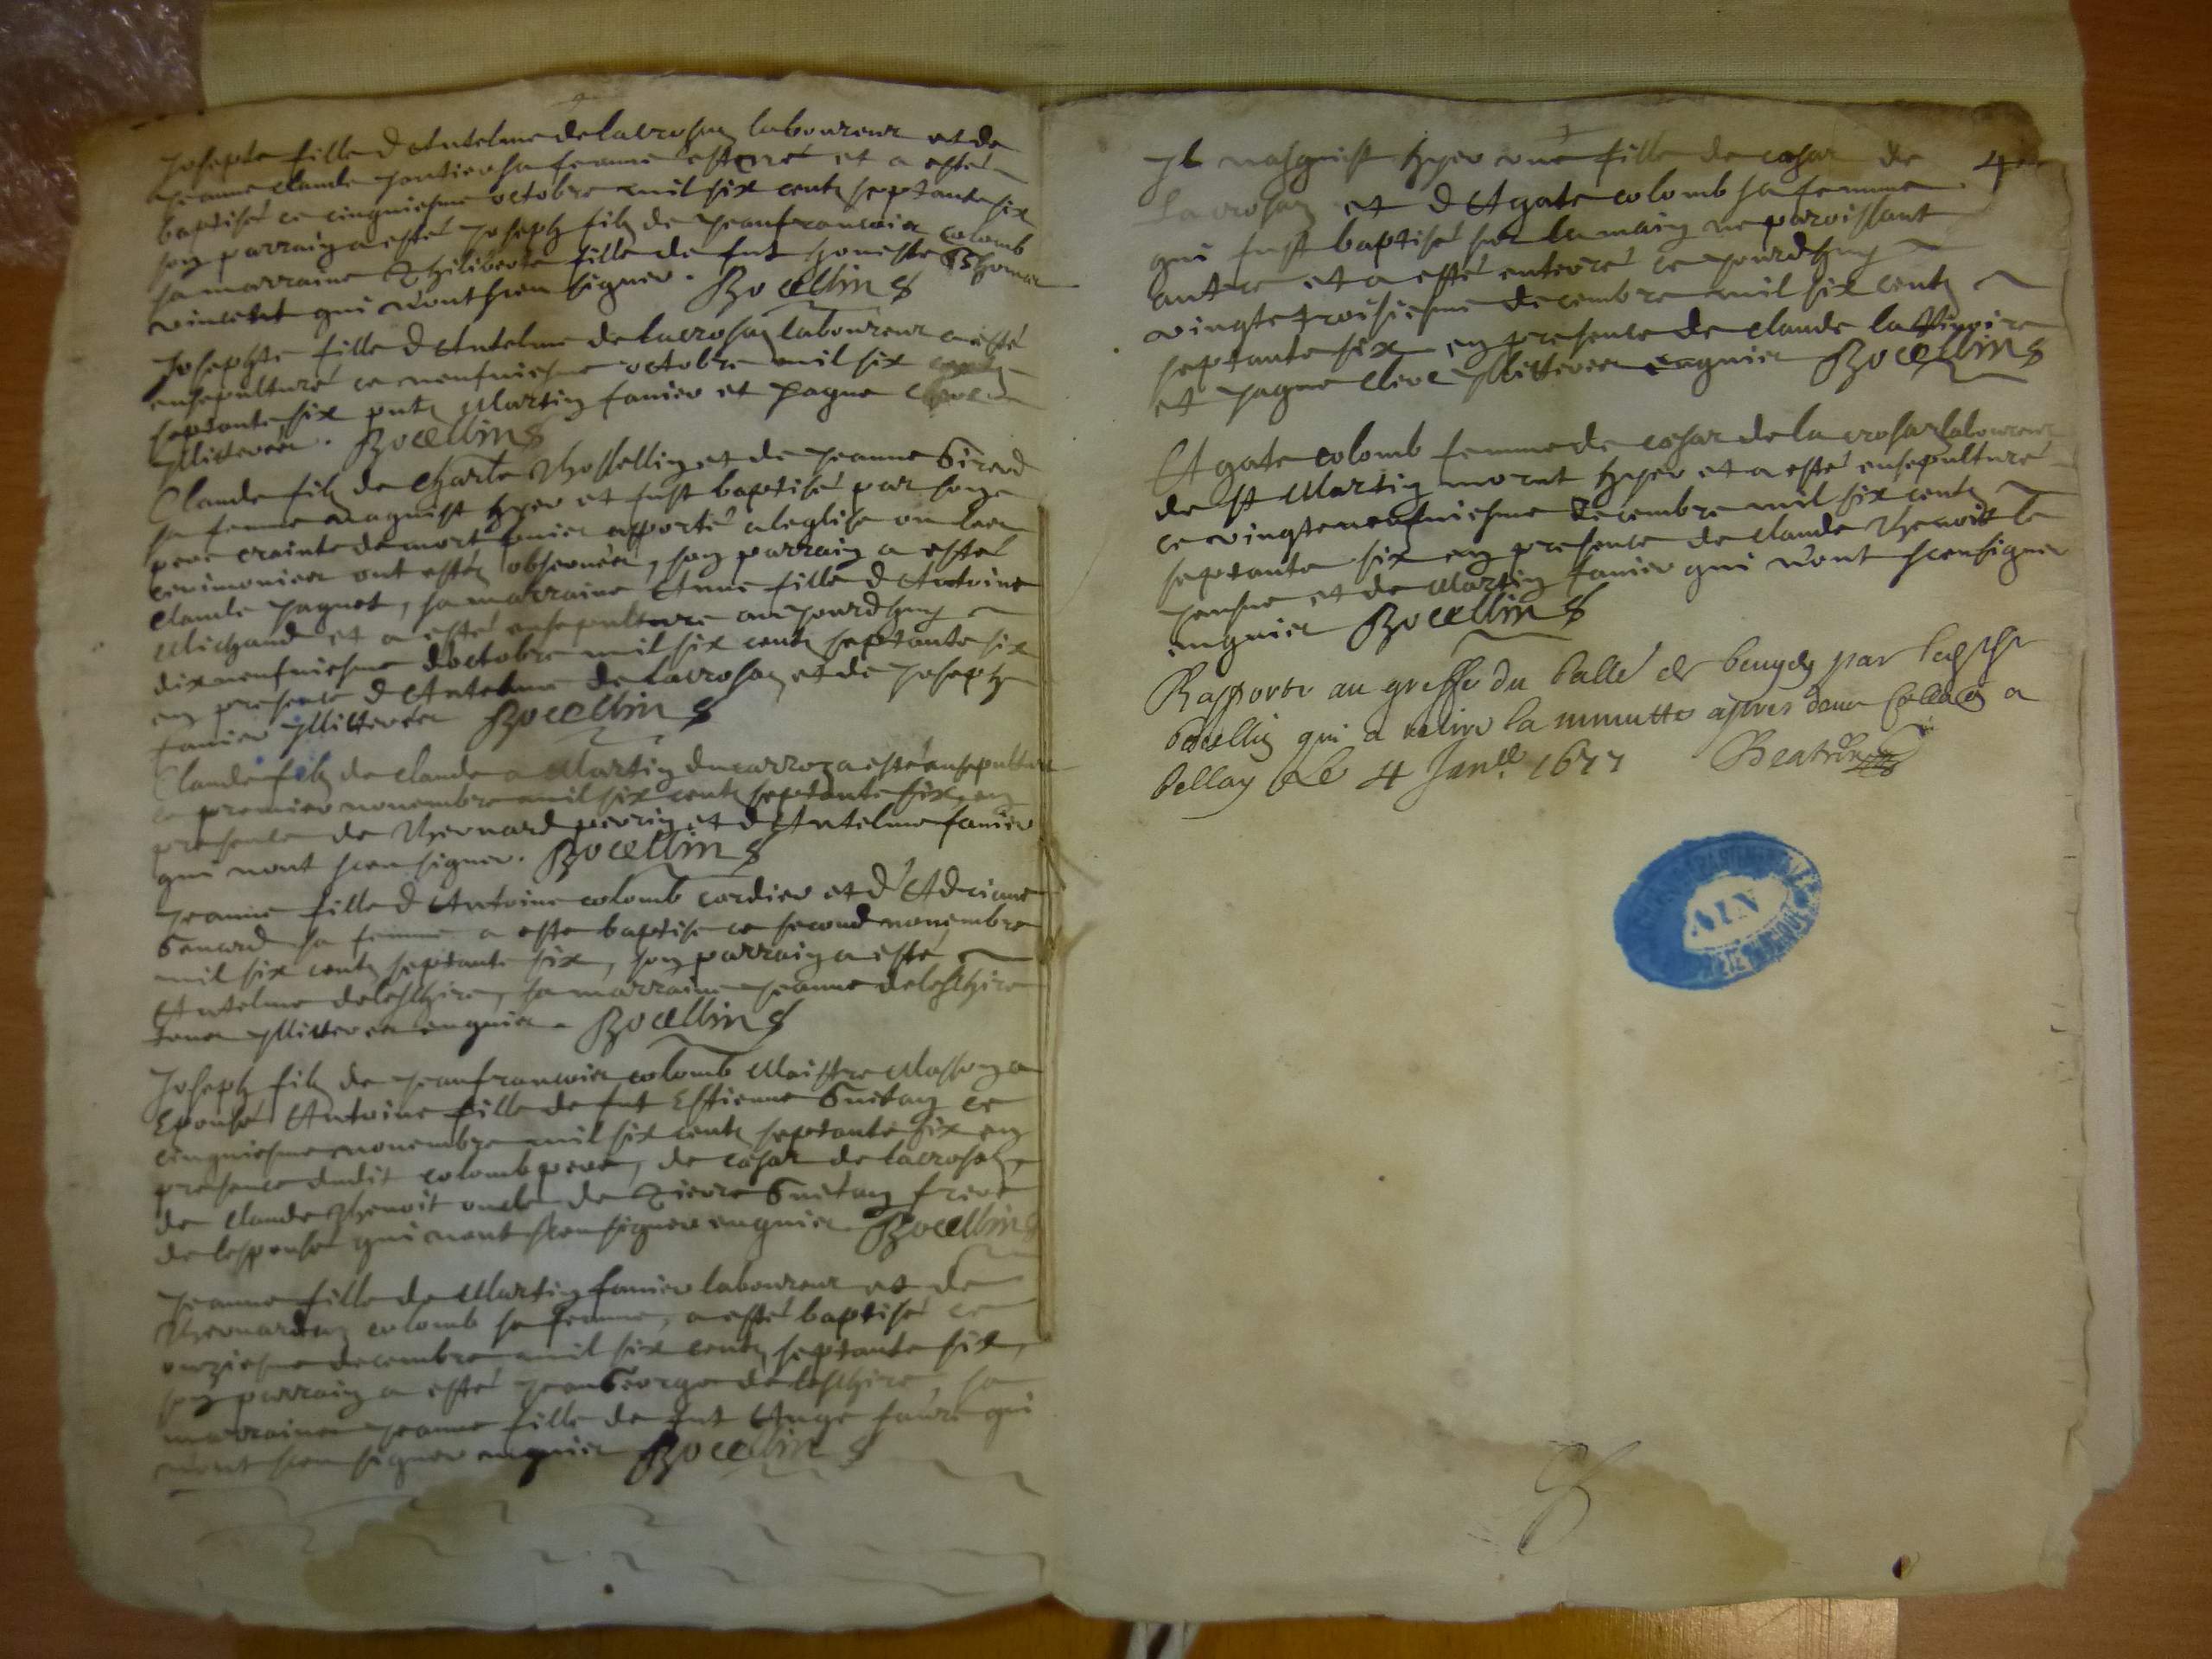 Josepte fille d Antelme delacrosaz laboureur et de
Jeanne claude pontier sa femme est né et a esté
baptisé ce cinquiesme octobre mil six centz septante six
son parrain a esté Joseph filz de Jeanfrancois colomb
sa marraine Philiberte fille de fut honeste Thomas
vincent qui n'ont sceu signer. Bocellin
Josephte fille d Antelme de lacrosaz laboureur a esté
ensepulturé ce neufuiesme octobre mil six centz
septante six Martin fanier et pagne
illiteres. Bocellin
Claude filz de Charle Rosselliet et de Jeanne
sa femme naquist hyer et fust baptisé par
pere crainte de mort apporté a leglise ou les
cerimonies ont estéz obseruées, son parrain a esté
Claude pagnot, sa marraine Anne fille d Antoine
Michaud et a esté ensepulturé aujourdhuy
dixneufuiesme d'octobre mil six centz septante six
en presence d Antelme de lacrosaz et de Joseph
fanier illiteres Bocellin
Claude filz de claude a Martin ducarroz a esté ensepulturé
ce premier nouembre mil six centz septante six, en
presence de Bernard perrin et d'Antelme fanier
qui n'ont sceu signer. Bocellin
Jeanne fille d Antoine colomb cordier et d'Adrianne
Genard sa femme a este baptisé ce second nouembre
mil six centz septante six, son parrain a esté
Antelme deleschire, sa marraine Jeanne deleschire
tous illiteres enquis. Bocellin
Joseph filz de Jeanfrancois colomb Maistre Masson a
Epousé Antoine fille de fut Estienne Guitan ce
cinquiesme nouembre mil six centz septante six en
presence dudit colomb pere, de cæsar de lacrosaz,
de Claude Benoit oncle de Pierre Guitan frere
de lespouse qui n'ont sceu signer enquis. Bocellin
Jeanne fille de Martin fanier laboureur et de
Bernardaz colomb sa femme, a esté baptisé ce
onziesme decembre mil six centz septante six,
son parrain a esté Jean George deleschire, sa
marraine Jeanne fille de fut Ange faure qui
n'ont sceu signer enquis Bocellin
Il nasquist hyer une fille de cæsar de 4
Lacrosaz et d Agate colomb sa femme
qui fust baptisé sur la main ne paroissant
autre et a esté enterré ce jourdhuy
vingtetroisiesme decembre mil six centz
septante six en presence de claude
et pagne clere illiteres enquis Bocellin
Agate colomb femme de cæsar de la crosaz laboureur
de st Martin morut hyer et a esté ensepulturé
ce vingteneufuiesme decembre mil six centz
septante six en presence de claude Benoit le
jeusne et de Martin fanier qui n'ont sceu signer
enquis Bocellin
Rapporte au greffe du balle de beugey par
bocellin qui a retire la minutte apres deue Colla°n a
bellay Le 4 Janer 1677
ARCHIVES DEPARTEMENTALES
AIN